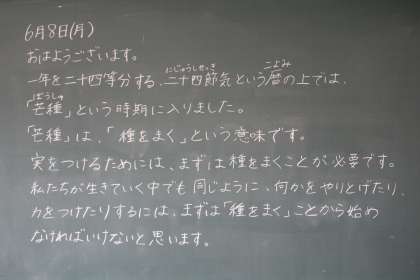 6月8日(月)
おはようございます。
一年を二十四等分する、二十四節気という暦の上では、
「芒種」という時期に入りました。
「芒種」は、「種をまく」という意味です。
実をつけるためには、まずは種をまくことが必要です。
私たちが生きていく中でも同じように、何かをやりとげたり、
力をつけたりするには、まずは「種をまく」ことから始め
なければいけないと思います。